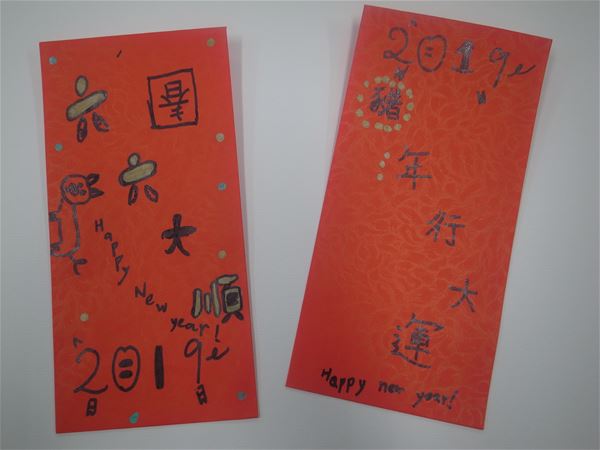 春
六
六
大
順
Happy
New
year!
2019
2019
豬
年
行
大
運
Happy new year!